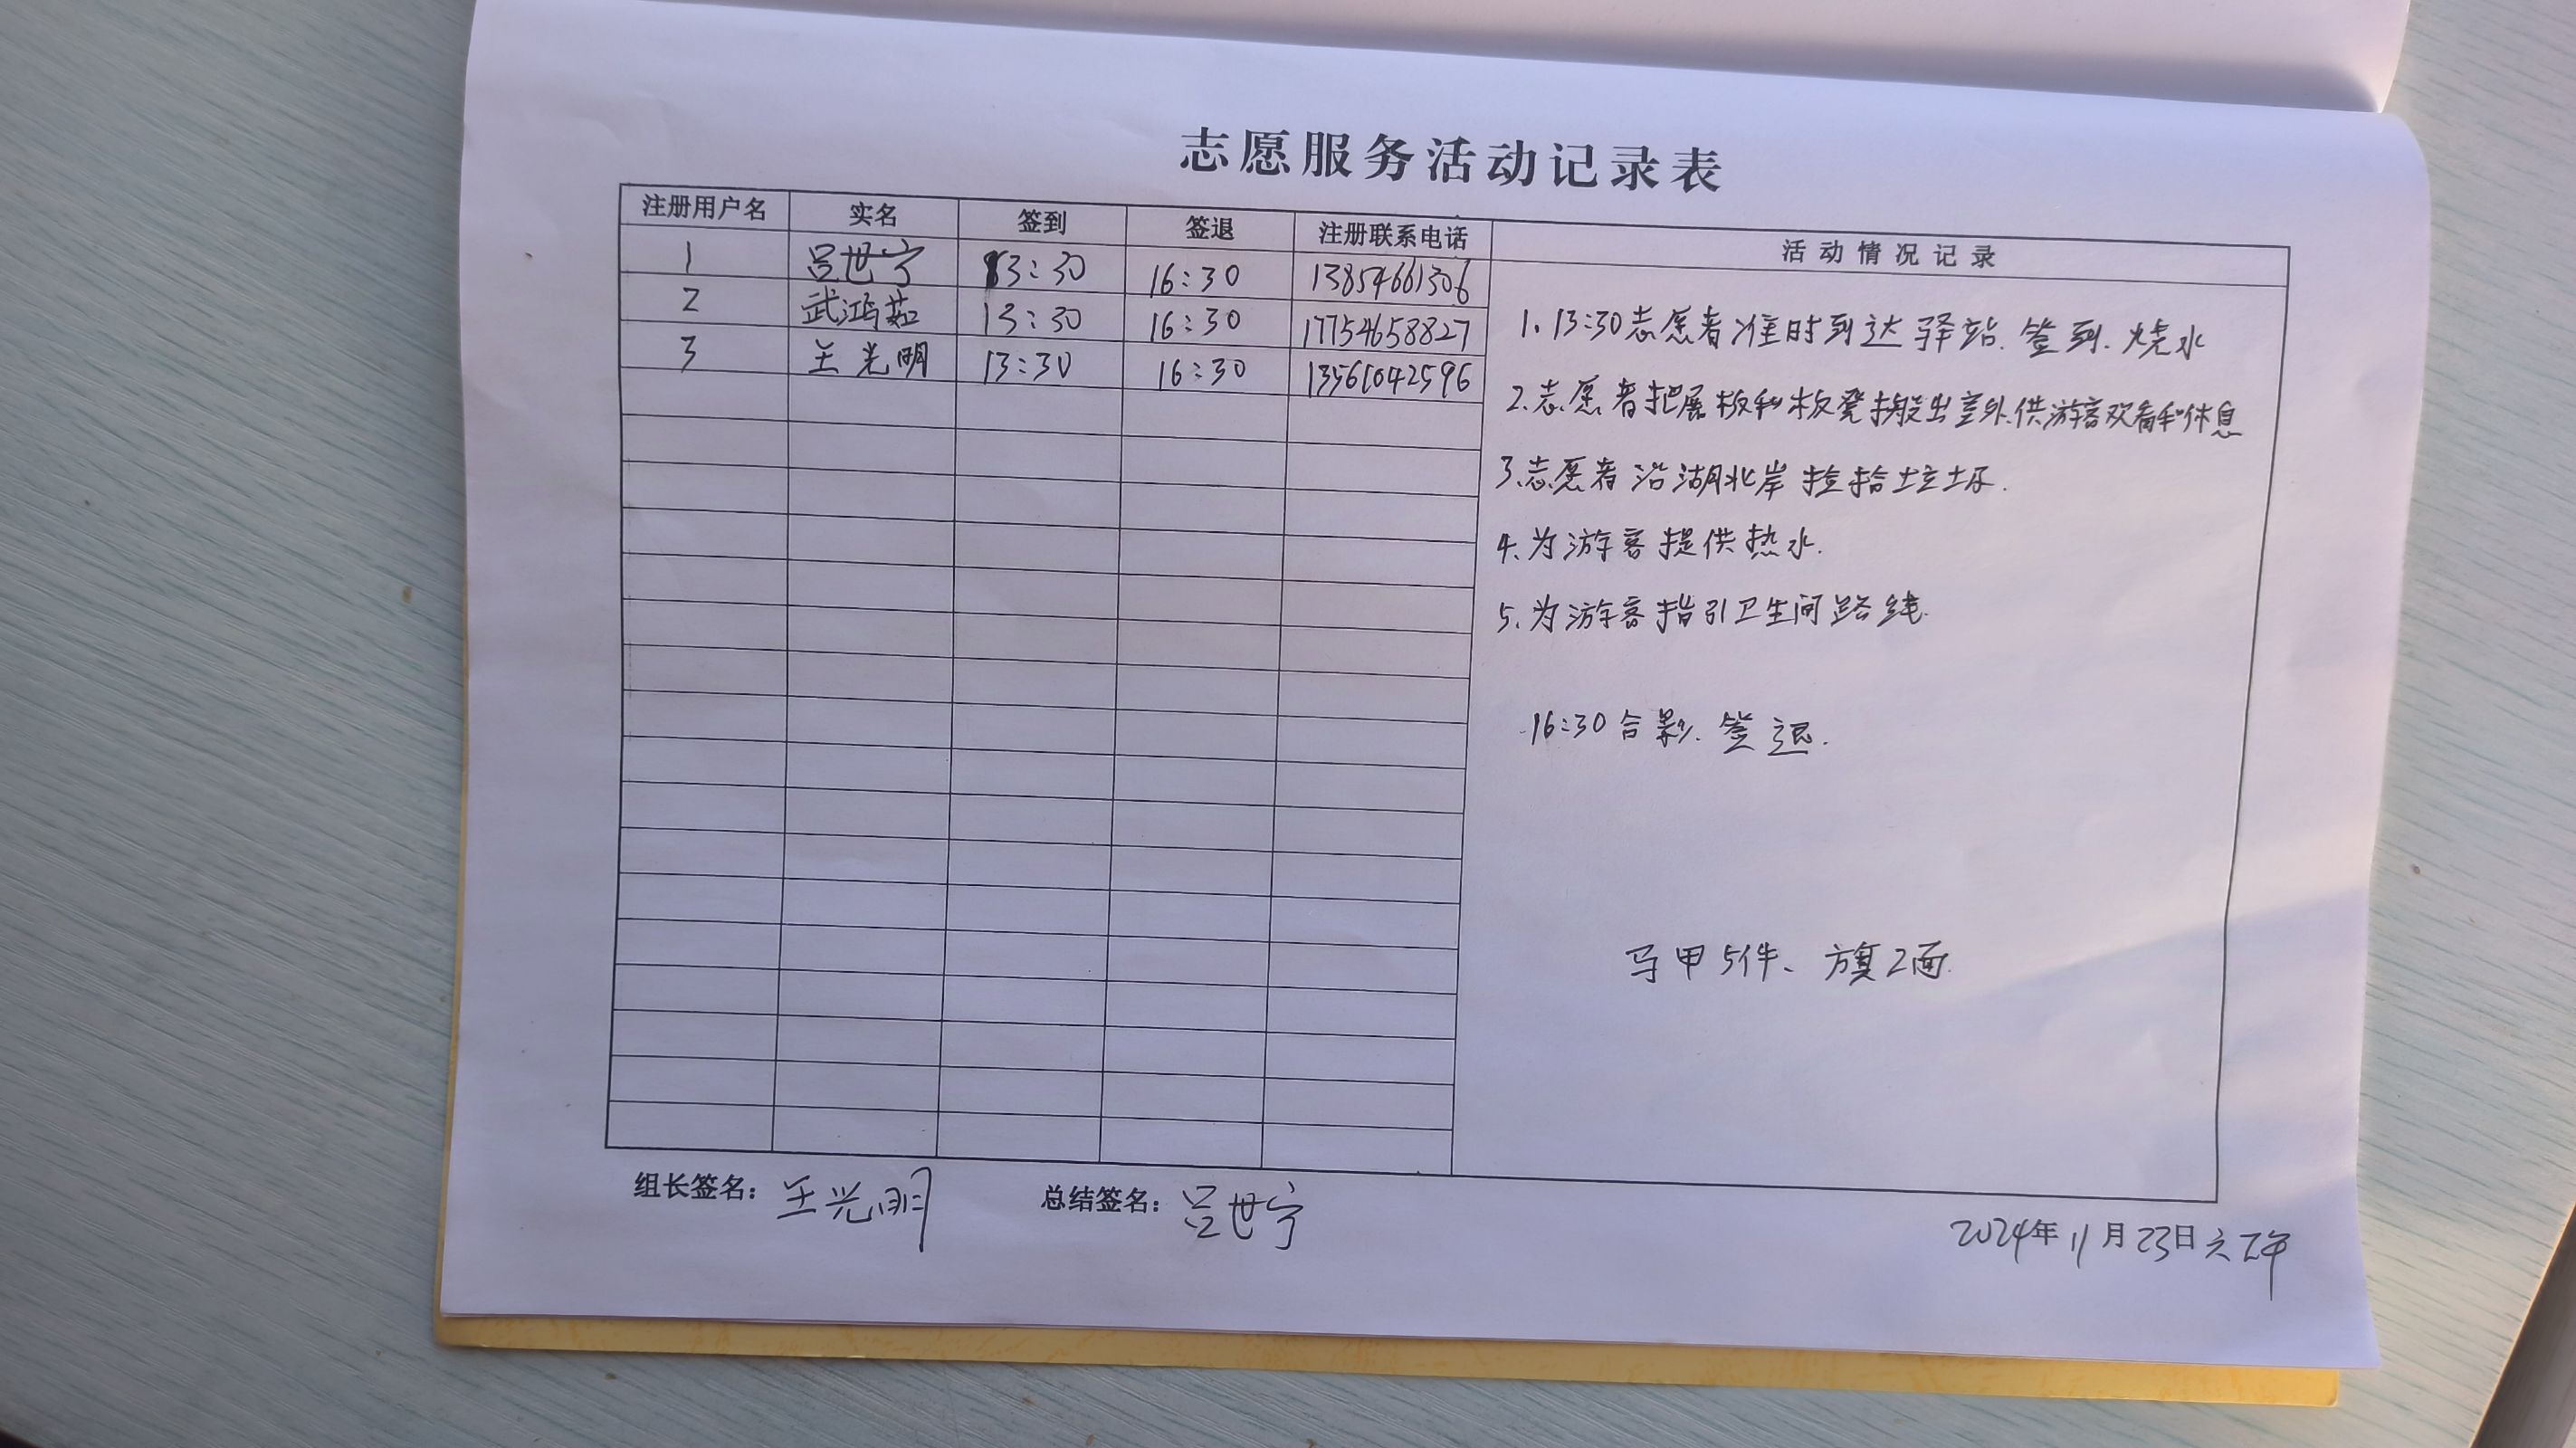 志愿服务活动记录表
注册用户名 实名 签到 签退 注册联系电话 活动情况记录
1 吕世宁 13:30 16:30 13854661306
2 武鸿茹 13:30 16:30 17754658827
3 王光明 13:30 16:30 13561042596
1、13:30志愿者准时到达驿站、签到、烧水
2、志愿者把展板和板凳搬出室外、供游客观看和休息
3、志愿者沿湖北岸捡拾垃圾.
4、为游客提供热水.
5、为游客指引卫生间路线.
16:30合影、签退.
马甲5件、旗2面.
组长签名：王光明 总结签名：吕世宁
2024年11月23日六下午